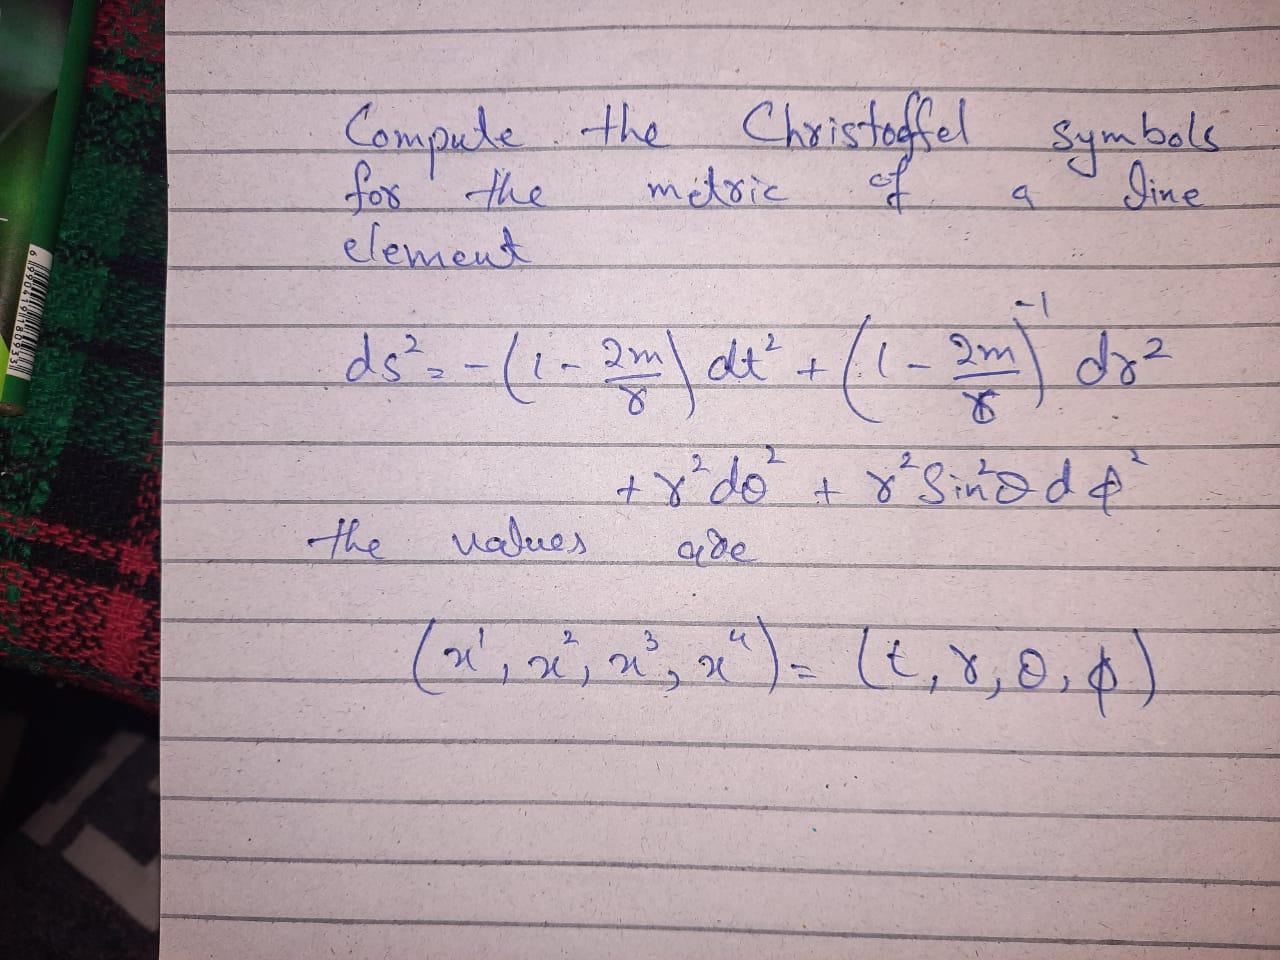 Compute the Christoffel symbols
for the metric of a line
element
ds² = -(1 - 2m/r) dt² + (1 - 2m/r)⁻¹ dr²
+ r²dθ² + r² Sin²θ dϕ²
the values are
(x¹, x², x³, x⁴) = (t, r, θ, ϕ)
6 990419 180933